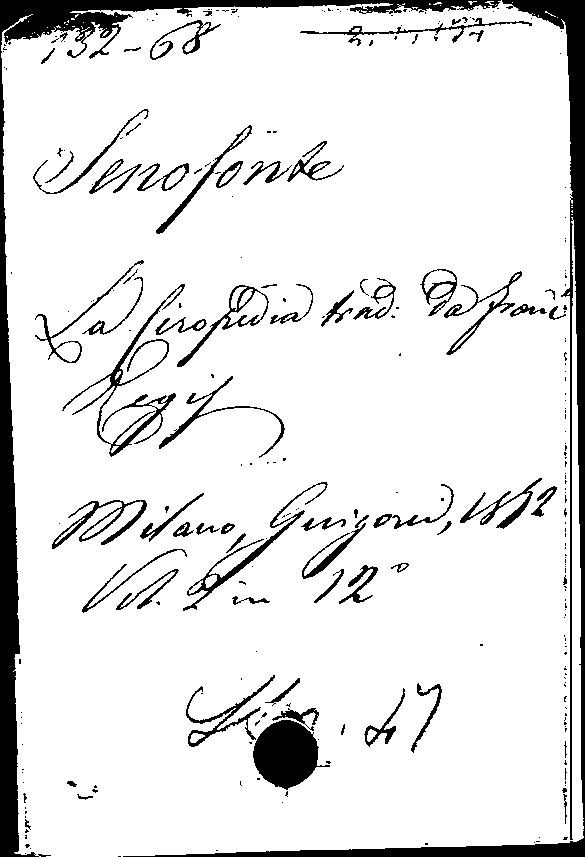 132-68
Senofonte
La Ciropedia trad: da Franc
Regis
Milano, Guigoni, 1852
Vol. 2 in 12°
47